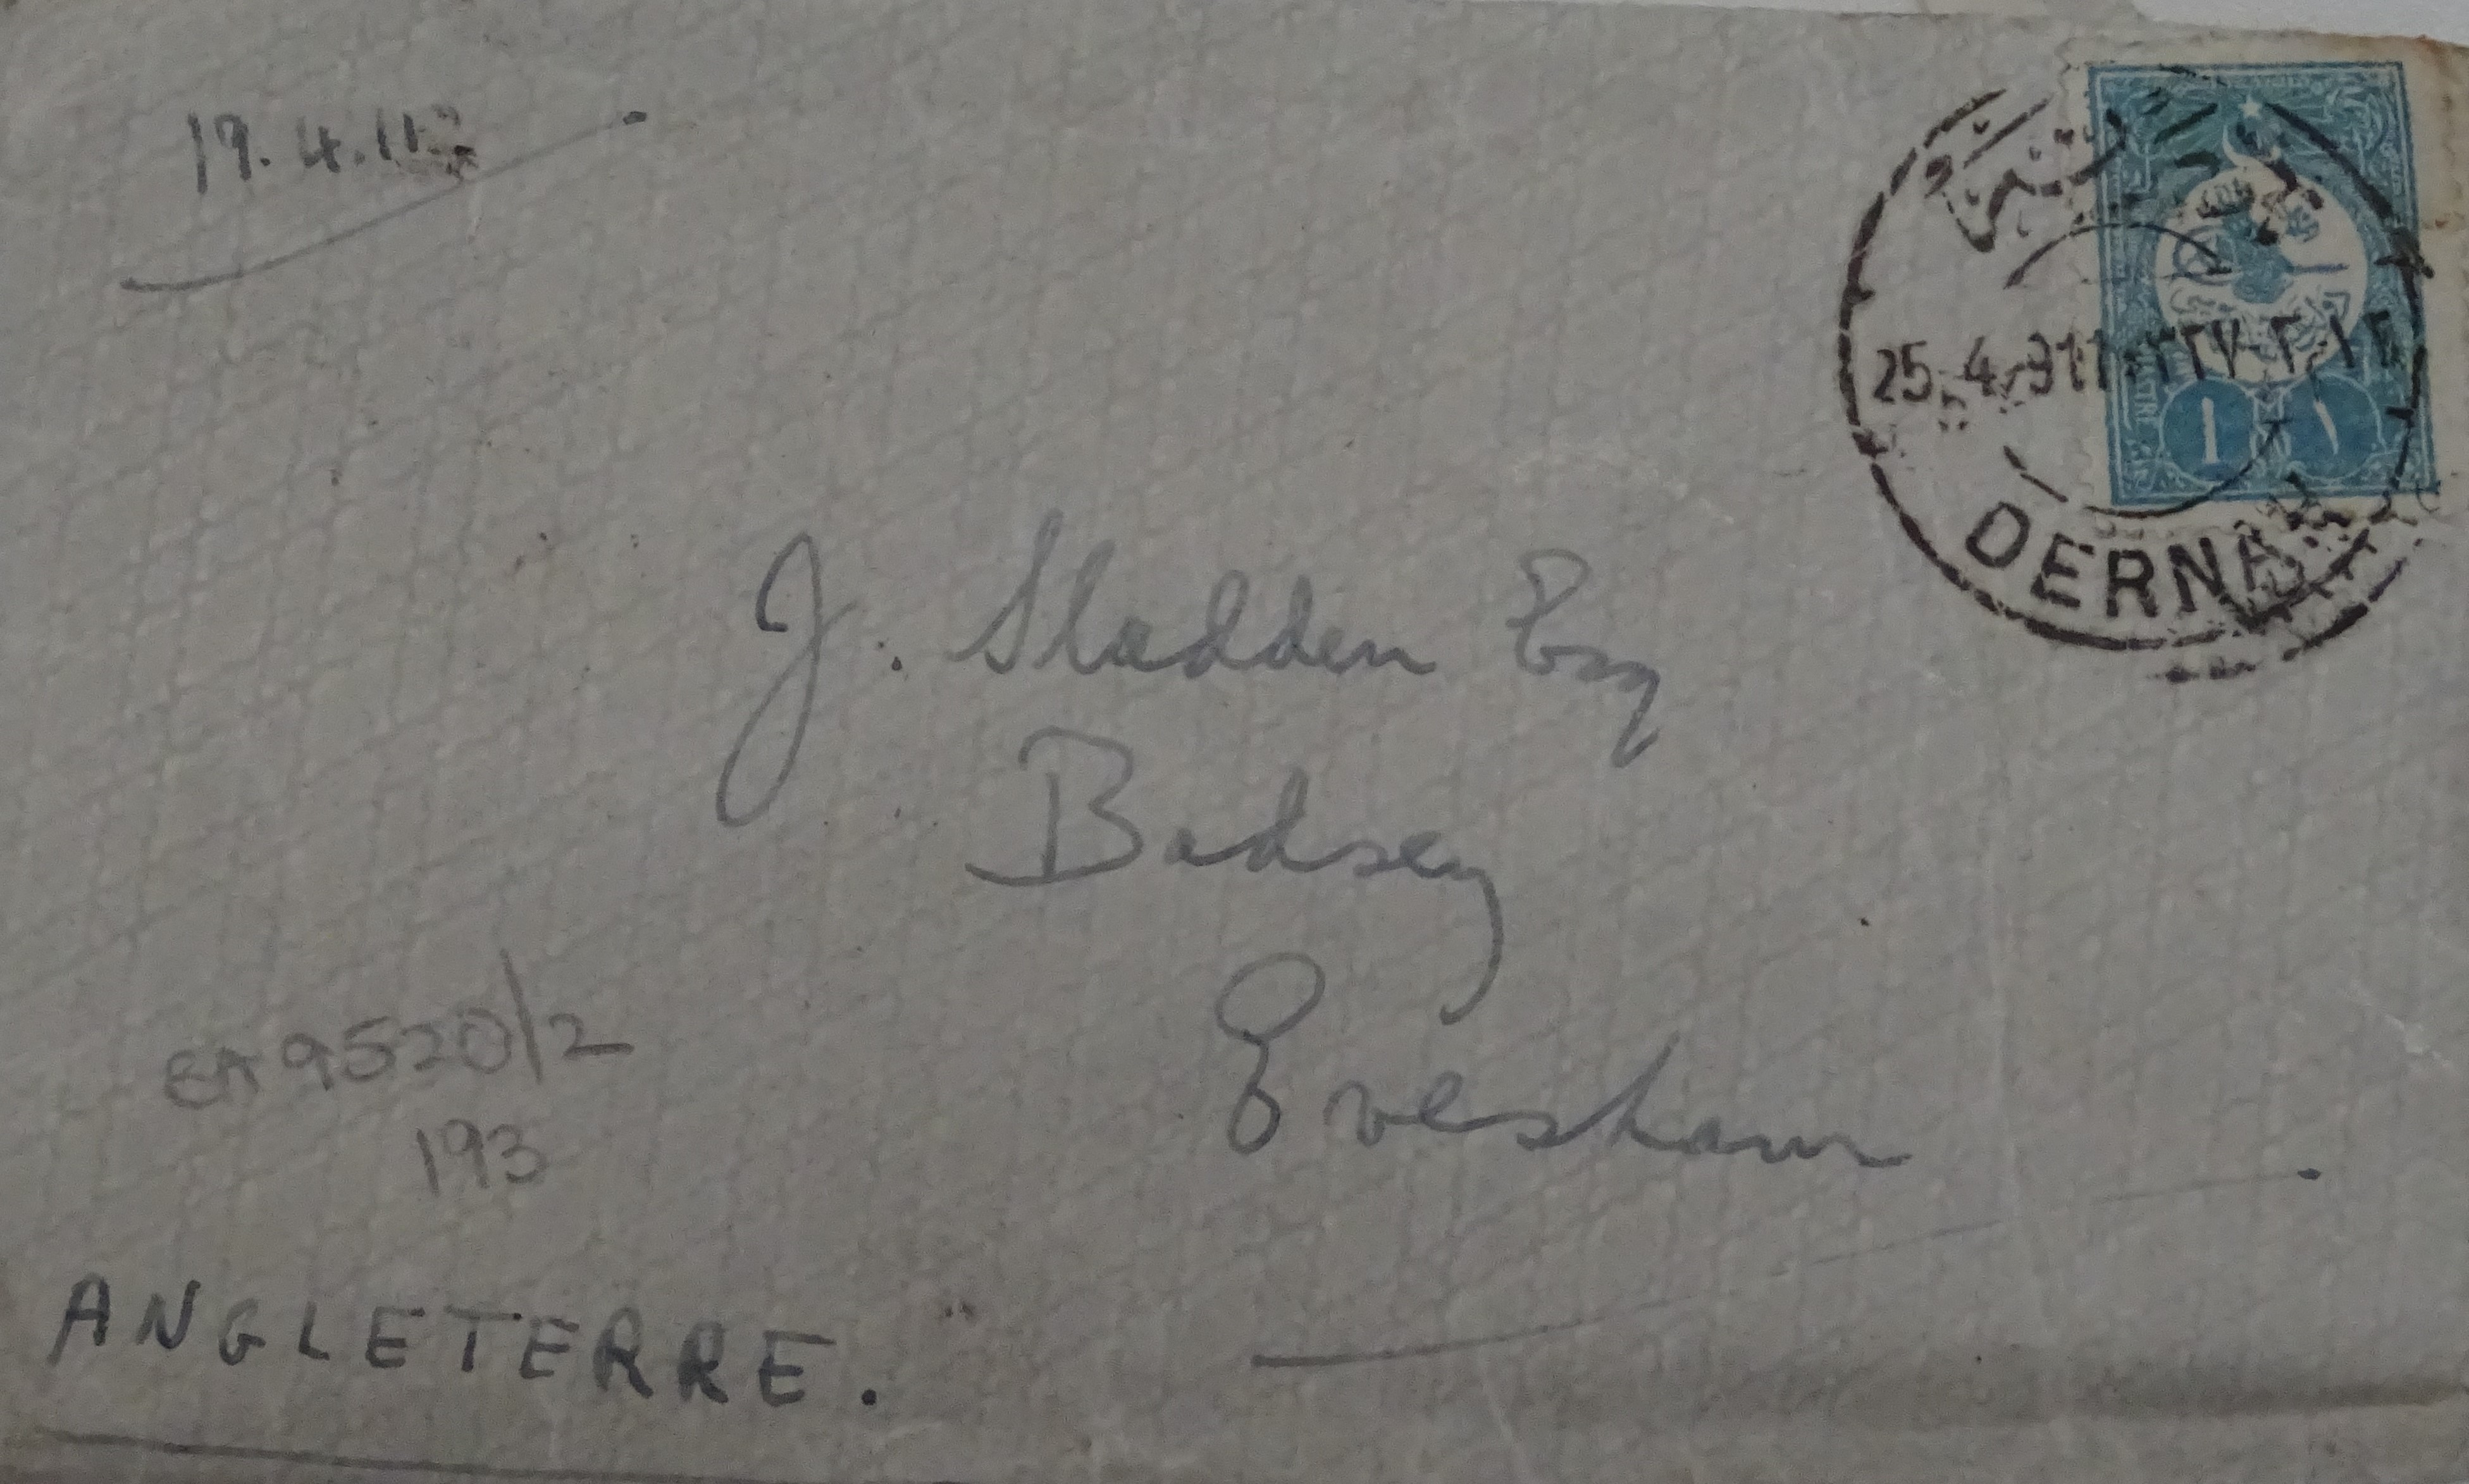 19.4.11
25.4.911
1 ١
DERNA
J. Sladden Esq
Badsey
Evesham
EA 9520/2
193
ANGLETERRE.